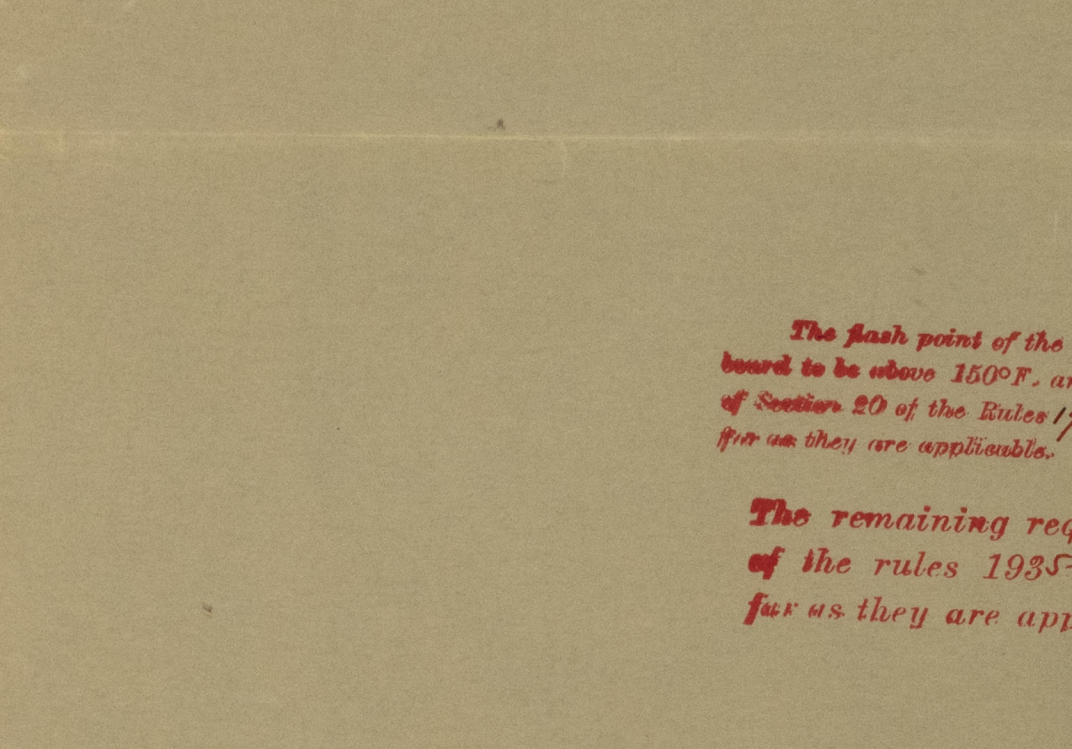 The flash point of the
board to be above 150°F. an
of Section 20 of the Rules 19
far as they are applicable.
The remaining req
of the rules 1935-
far as they are app